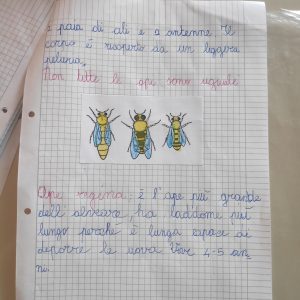 2 paia di ali e 2 antenne Il
corpo è ricoperto da un leggera
peluria.
Non tutte le api sono uguale
Ape regina: è l'ape più grande
dell'alveare, ha l'addome più
lungo perchè è lunga capace di
deporre le uova Vive 4-5 an-
ni.